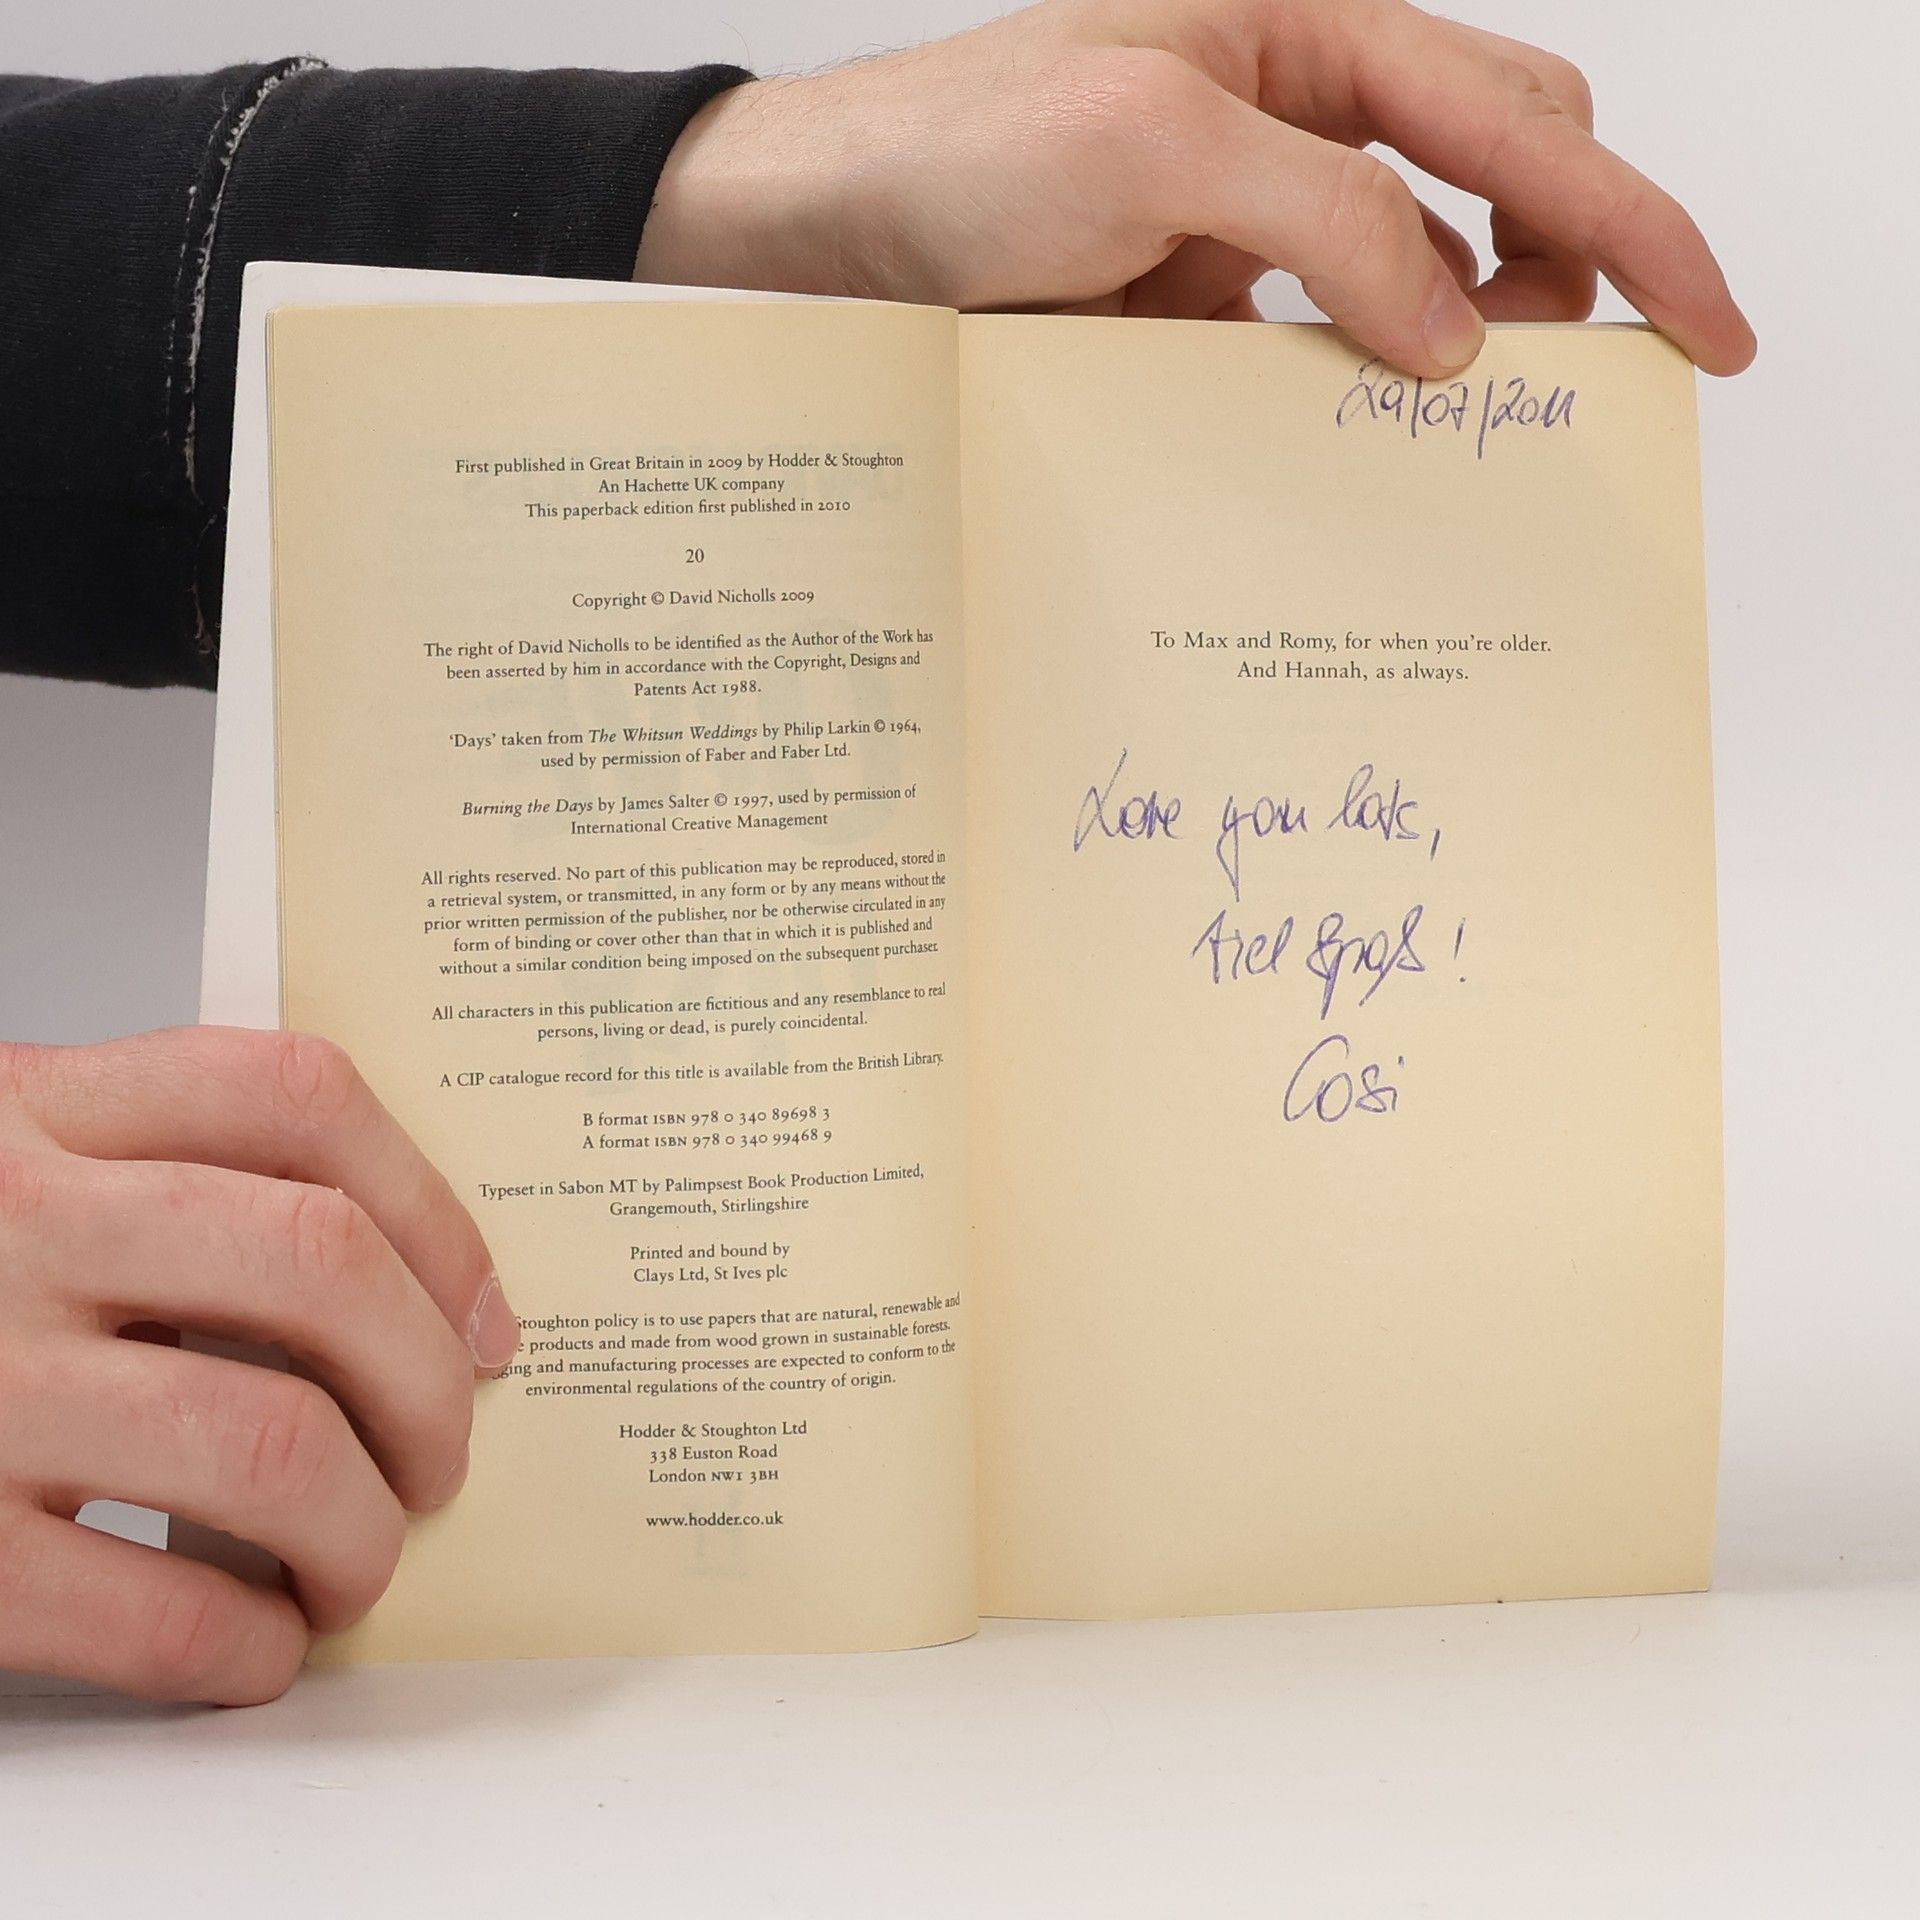 First published in Great Britain in 2009 by Hodder & Stoughton
An Hachette UK company
This paperback edition first published in 2010
20
Copyright © David Nicholls 2009
The right of David Nicholls to be identified as the Author of the Work has
been asserted by him in accordance with the Copyright, Designs and
Patents Act 1988.
‘Days’ taken from The Whitsun Weddings by Philip Larkin © 1964,
used by permission of Faber and Faber Ltd.
Burning the Days by James Salter © 1997, used by permission of
International Creative Management
All rights reserved. No part of this publication may be reproduced, stored in
a retrieval system, or transmitted, in any form or by any means without the
prior written permission of the publisher, nor be otherwise circulated in any
form of binding or cover other than that in which it is published and
without a similar condition being imposed on the subsequent purchaser.
All characters in this publication are fictitious and any resemblance to real
persons, living or dead, is purely coincidental.
A CIP catalogue record for this title is available from the British Library.
B format ISBN 978 0 340 89698 3
A format ISBN 978 0 340 99468 9
Typeset in Sabon MT by Palimpsest Book Production Limited,
Grangemouth, Stirlingshire
Printed and bound by
Clays Ltd, St Ives plc
Stoughton policy is to use papers that are natural, renewable and
products and made from wood grown in sustainable forests.
and manufacturing processes are expected to conform to the
environmental regulations of the country of origin.
Hodder & Stoughton Ltd
338 Euston Road
London NW1 3BH
www.hodder.co.uk
29/07/2011
To Max and Romy, for when you’re older.
And Hannah, as always.
Love you lots,
viel Spaß!
Cosi